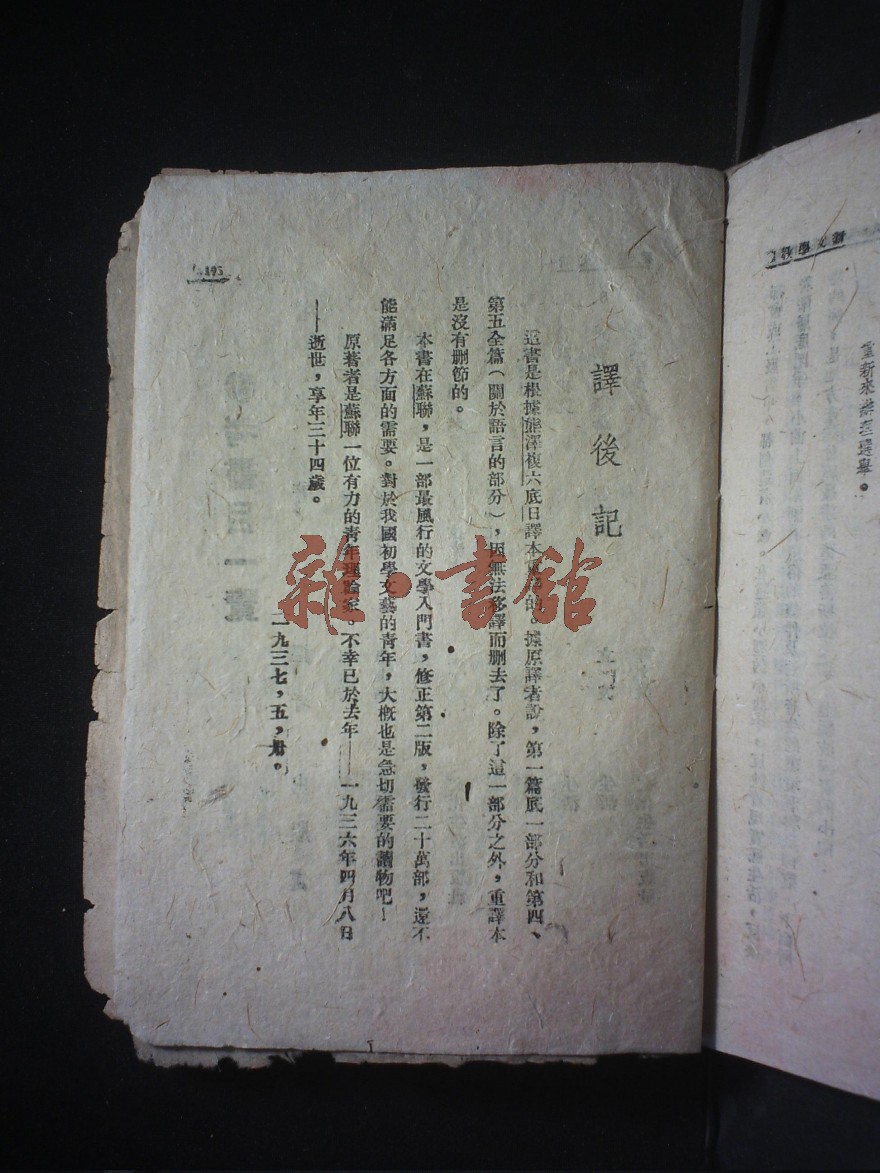 重新來辦理選舉。
譯後記
這書是根據熊澤復六底日譯本重譯的。據原譯者說，第一篇底一部分和第四、
第五全篇（關於語言的部分），因無法移譯而删去了。除了這一部分之外，重譯本
是沒有删節的。
本書在蘇聯，是一部最風行的文學入門書，修正第二版，發行二十萬部，還不
能滿足各方面的需要。對於我國初學文藝的青年，大概也是急切需要的讀物吧！
原著者是蘇聯一位有力的青年理論家。不幸已於去年——一九三六年四月八日
——逝世，享年三十四歲。
一九三七，五，卅。
195
雜·書館